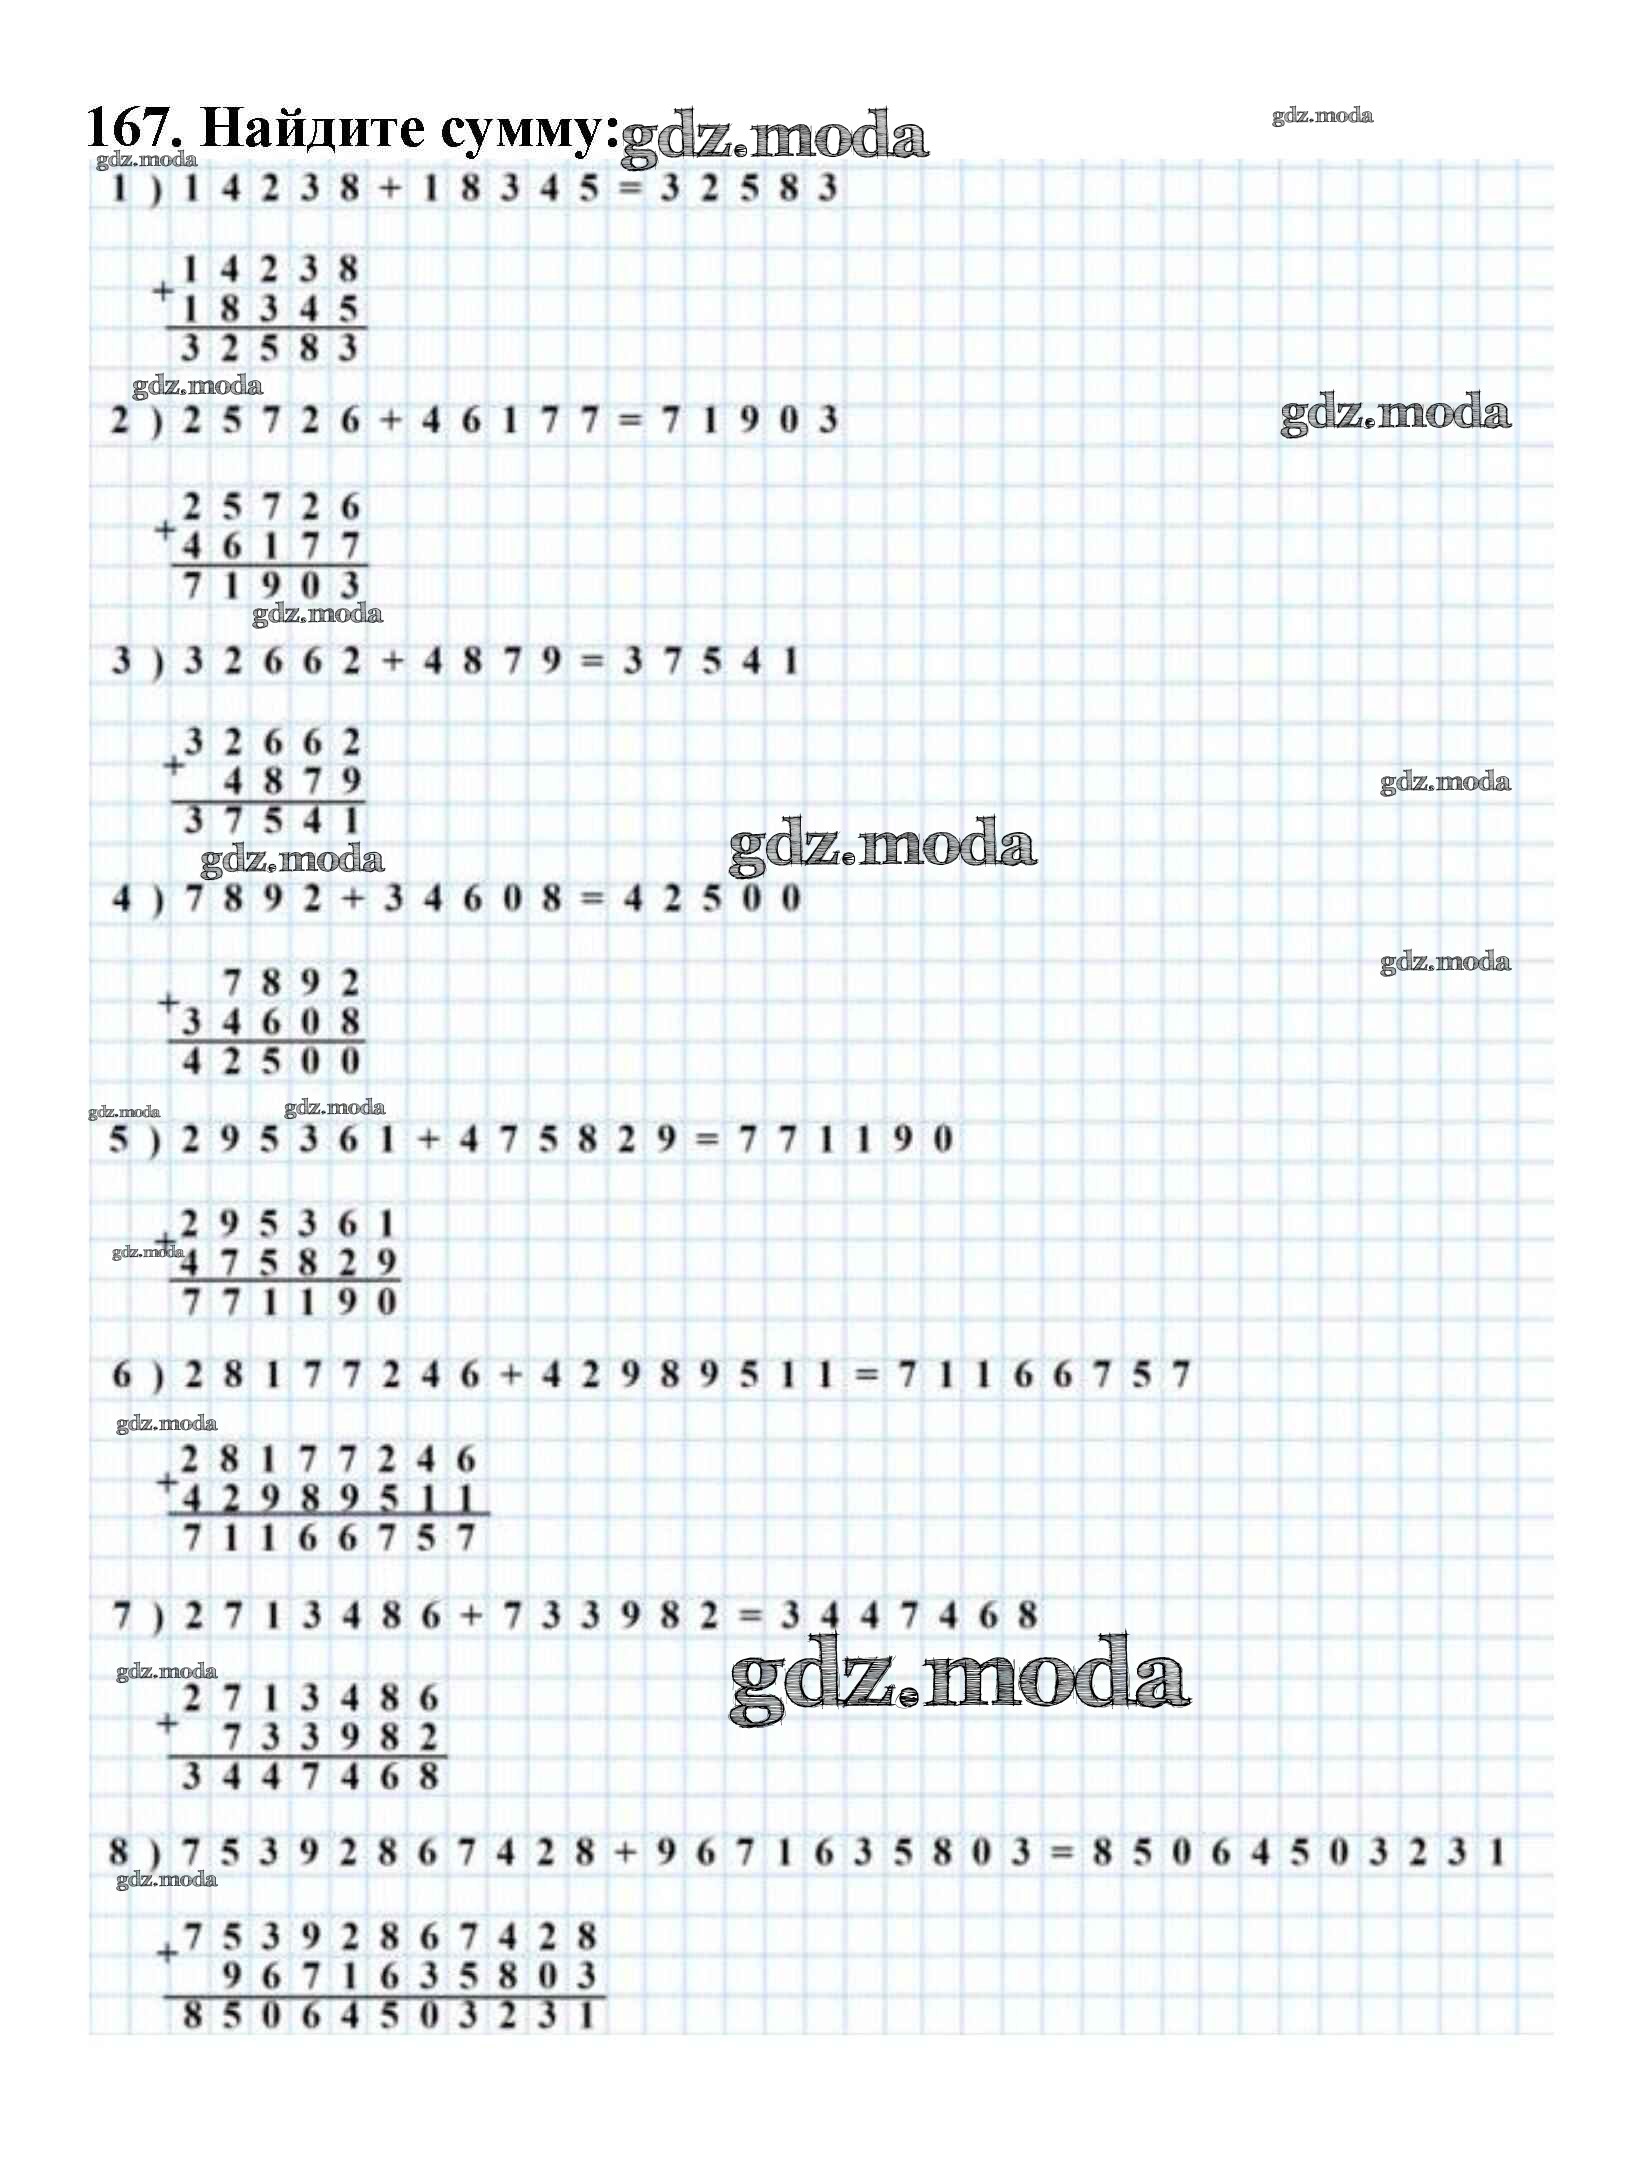 167. Найдите сумму: gdz.moda
gdz.moda
gdz.moda
1) 14238 + 18345 = 32583
14238
+
18345
32583
gdz.moda
gdz.moda
2) 25726 + 46177 = 71903
25726
+
46177
71903
gdz.moda
3) 32662 + 4879 = 37541
32662
+
4879
gdz.moda
37541
gdz.moda
gdz.moda
4) 7892 + 34608 = 42500
gdz.moda
7892
+
34608
42500
gdz.moda
gdz.moda
5) 295361 + 475829 = 771190
295361
+
gdz.moda
475829
771190
6) 28177246 + 42989511 = 71166757
gdz.moda
28177246
+
42989511
71166757
7) 2713486 + 733982 = 3447468
gdz.moda
gdz.moda
2713486
+
733982
3447468
8) 75392867428 + 9671635803 = 85064503231
gdz.moda
75392867428
+
9671635803
85064503231